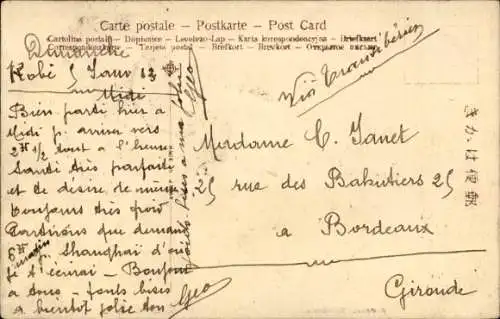 Carte postale – Postkarte – Post Card
Cartolina postale – Dopisnice – Levelezo-Lap – Karta korespondencyjna – Briefkort
Correspondenzkarte – Tarjeta postal – Brefkort – Brevkort – Открытое письмо
Dimanche
Kobé 5 Janv 13
Midi
Bien parti hier à
Midi p. arriver vers
2H 1/2 tout à l'heure
Santé très parfaite
et te désire de même
Toujours très froid
Partirons que demain
6H matin p. Shanghaï d'où
je t'écrirai – Bonjour
à tous – gents bises
à bientôt jolie ton
Geo
bises à ma jolie
Geo
Via Transsibérien
Madame C. Janet
25 rue des Bahutiers 25
à Bordeaux
Gironde
きかは便郵